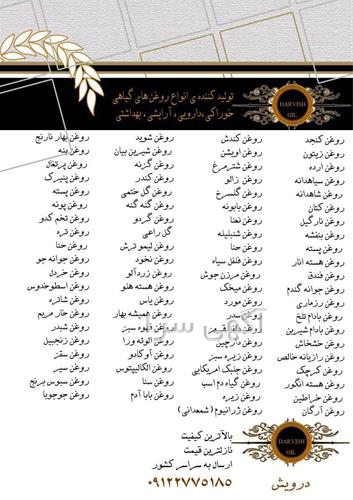 تولید کننده ی انواع روغن های گیاهی
خوراکی،دارویی، آرایشی، بهداشتی
DARVISH
OIL
روغن کنجد
روغن زیتون
روغن ارده
روغن سیاهدانه
روغن شاهدانه
روغن کتان
روغن نارگیل
روغن بنفشه
روغن پسته
روغن هسته انار
روغن فندق
روغن جوانه گندم
روغن رزماری
روغن بادام تلخ
روغن بادام شیرین
روغن خشخاش
روغن رازیانه خالص
روغن کرچک
روغن هسته انگور
روغن خراطین
روغن آرگان
روغن کندش
روغن آویشن
روغن شترمرغ
روغن زالو
روغن گلسرخ
روغن بابونه
روغن نعنا
روغن شنبلیله
روغن حنا
روغن فلفل سیاه
روغن مرزن جوش
روغن میخک
روغن مورد
روغن سدر
روغن دارچین
روغن زیره سبز
روغن جلبک آمریکایی
روغن گیاه دم اسب
روغن ژرانیوم (شمعدانی)
روغن شوید
روغن شیرین بیان
روغن گزنه
روغن کندر
روغن گل ختمی
روغن گنه گنه
روغن گردو
گل راعی
روغن لیمو ترش
روغن نخود
روغن زردآلو
روغن هسته هلو
روغن یاس
روغن همیشه بهار
روغن قهوه سبز
روغن آلوئه ورا
روغن آوکادو
روغن اکالیپتوس
روغن سنا
روغن بابا آدم
روغن بهار نارنج
روغن پنبه
روغن پرتغال
روغن پنیرک
روغن پسته
روغن پونه
روغن تخم کدو
روغن تره
روغن حنا
روغن جوانه جو
روغن خردل
روغن اسطوخدوس
روغن شاتره
روغن خار مریم
روغن شبدر
روغن زنجبیل
روغن سقز
روغن سیر
روغن سبوس برنج
روغن جوجوبا
آگهی سرا
بالاترین کیفیت
نازلترین قیمت
ارسال به سراسر کشور
۰۹۱۲۲۷۷۵۱۸۵
DARVISH
OIL
درویش